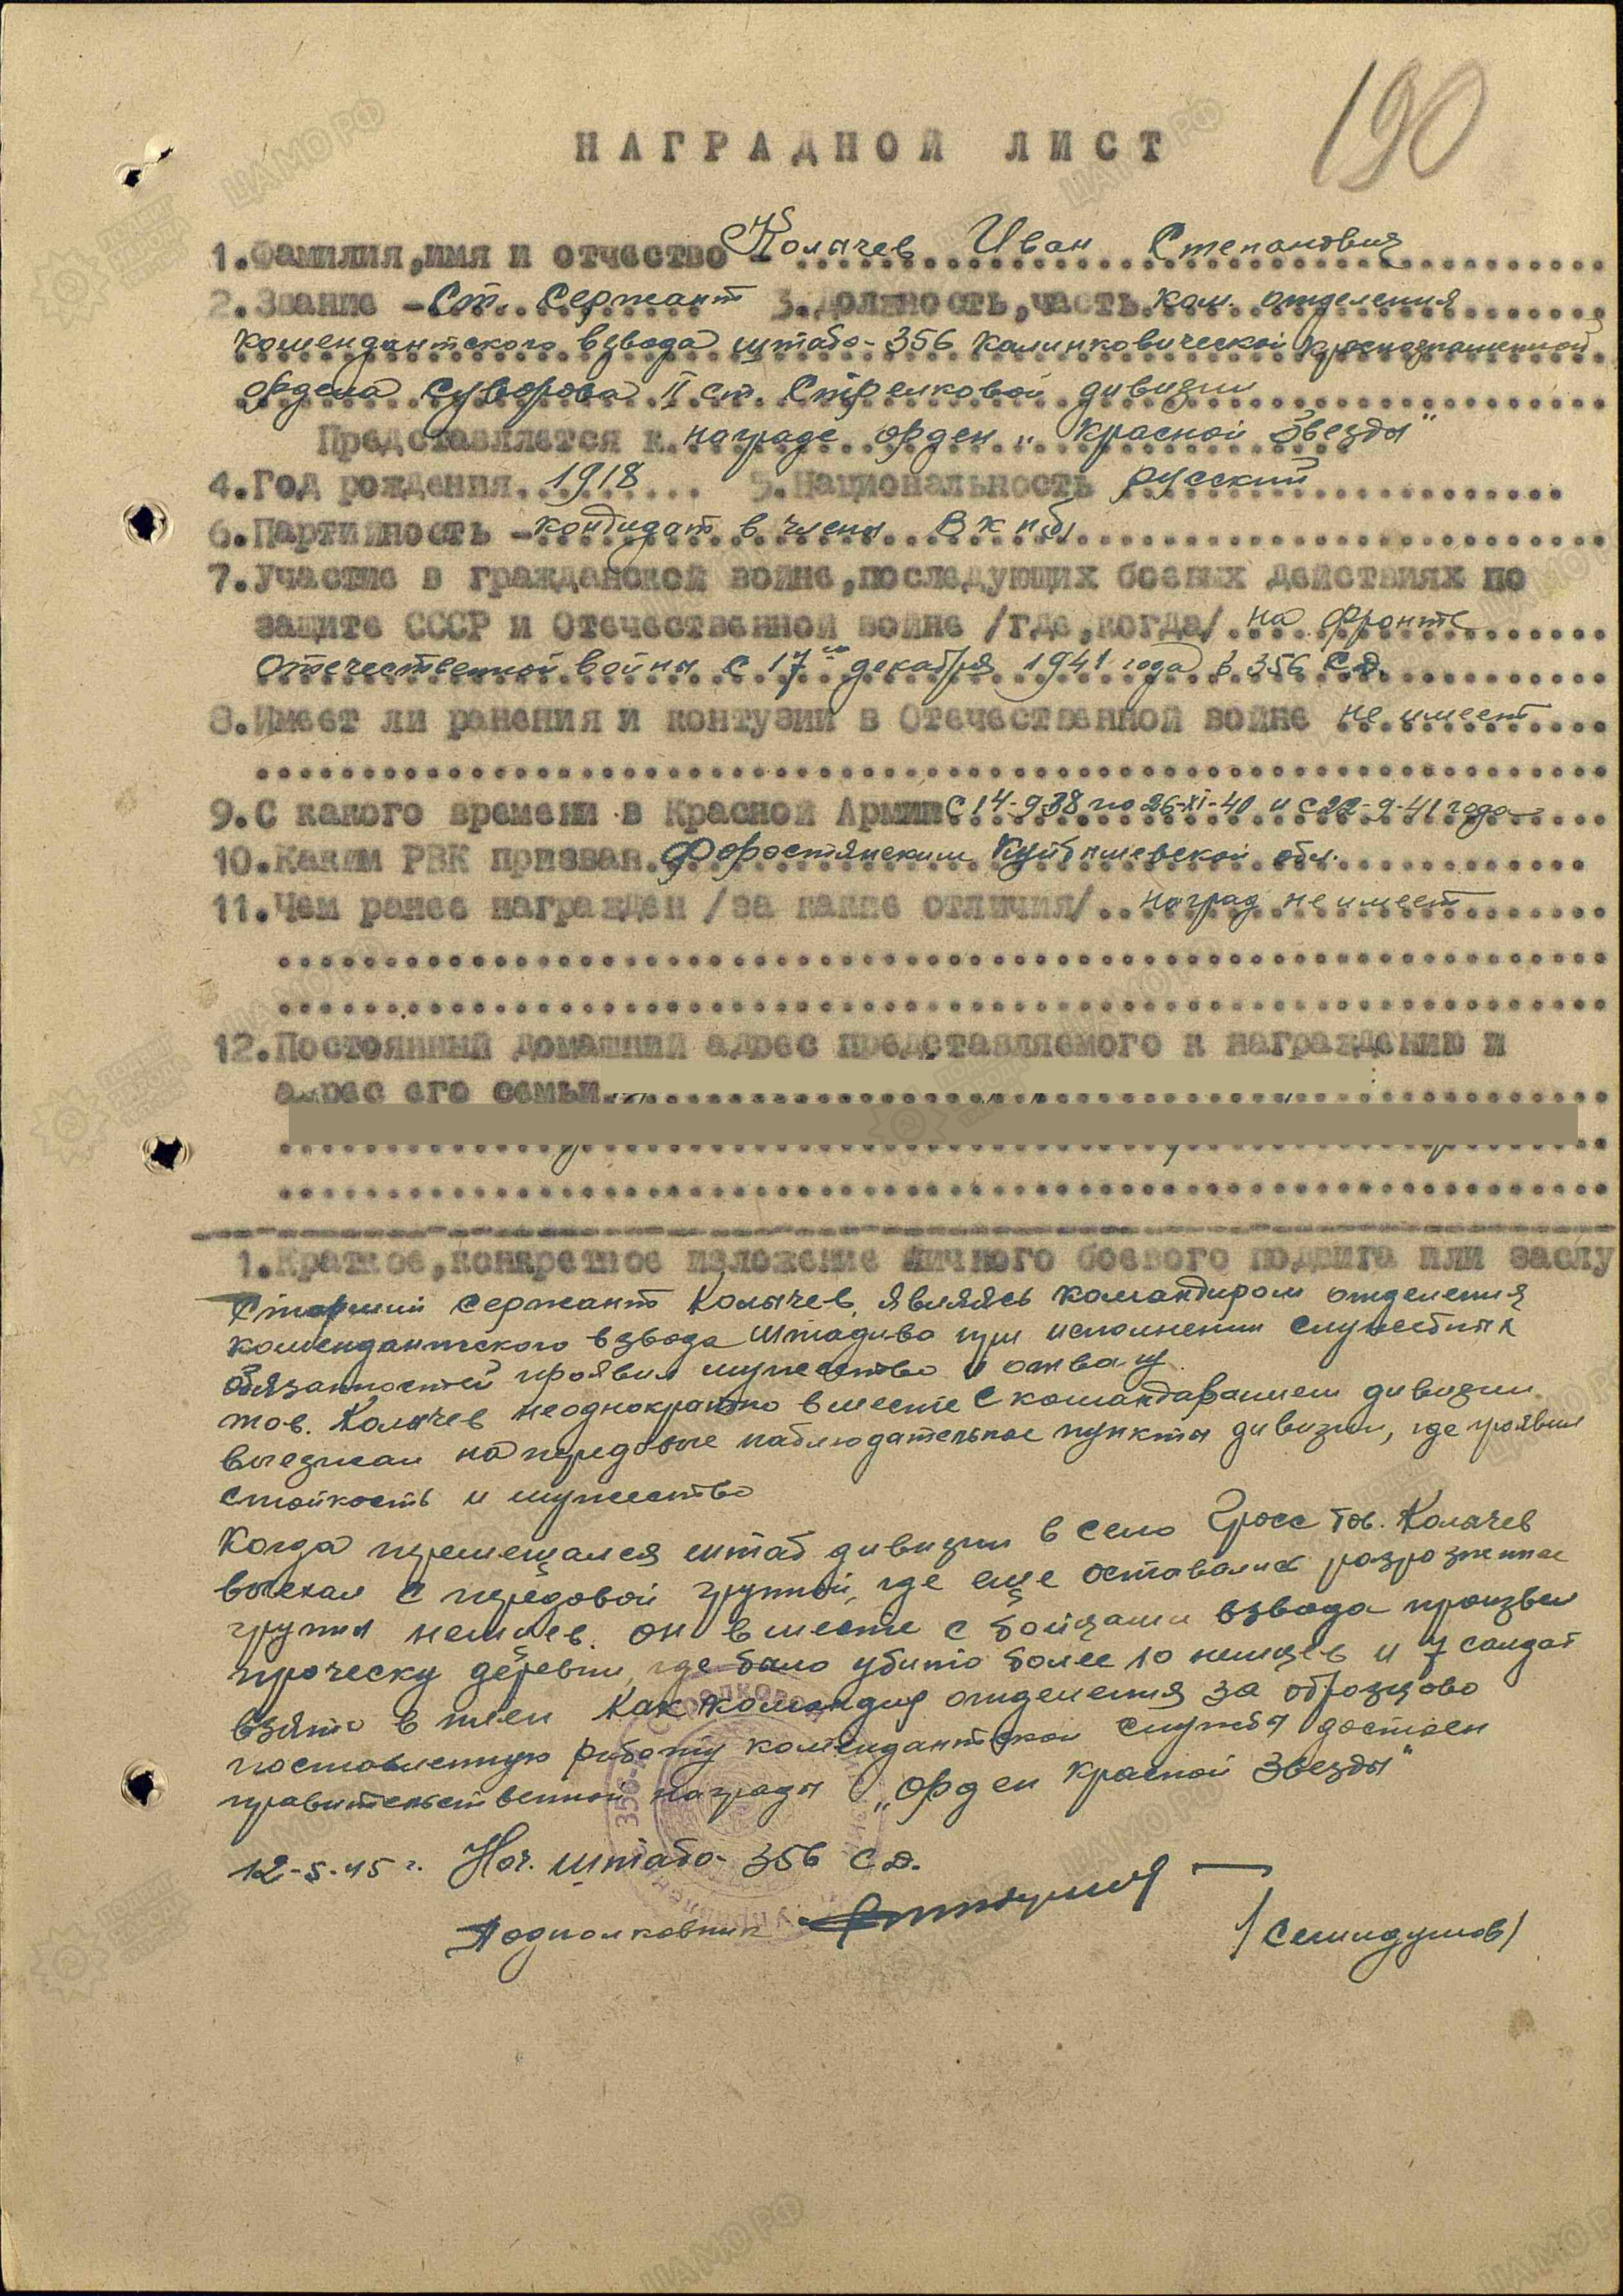 190
НАГРАДНОЙ ЛИСТ
1.Фамилия,имя и отчество - Колычев Иван Степанович
2.Звание - Ст. Сержант 3.Должность,часть ком. отделения
комендантского взвода штаба - 356 Калинковической краснознаменной
ордена Суворова II ст. Стрелковой дивизии
Представляется к награде орден „Красной Звезды"
4.Год рождения 1918 5.Национальность русский
6.Партийность - кандидат в члены ВКП(б)
7.Участие в гражданской войне,последующих боевых действиях по
защите СССР и Отечественной войне /где,когда/ на фронте
Отечественной войны с 17го декабря 1941 года в 356 С.Д.
8.Имеет ли ранения и контузии в Отечественной войне не имеет
9.С какого времени в Красной Армии с 14-9-38 по 26-XI-40 и с 22-9-41 года
10.Каким РВК призван Форостянским Куйбышевской обл.
11.Чем ранее награжден /за какие отличия/ наград не имеет
12.Постоянный домашний адрес представляемого к награждению и
адрес его семьи
1.Краткое,конкретное изложение личного боевого подвига или заслу
Старший сержант Колычев, являясь командиром отделения
комендантского взвода штадива при исполнении служебных
обязанностей проявил мужество и отвагу.
тов. Колычев неоднократно вместе с командованием дивизии
выезжал на передовые наблюдательные пункты дивизии, где проявил
стойкость и мужество
Когда перемещался штаб дивизии в село Гросс тов. Колычев
выехал с передовой группой, где еще оставались разрозненные
группы немцев. он вместе с бойцами взвода произвел
проческу деревни, где было убито более 10 немцев и 7 солдат
взято в плен Как командир отделения за образцово
поставленную работу комендантской службы достоен
правительственной награды „Орден Красной Звезды"
12-5-45 г. Нач. штаба - 356 С.Д.
Подполковник
/Семидумов/